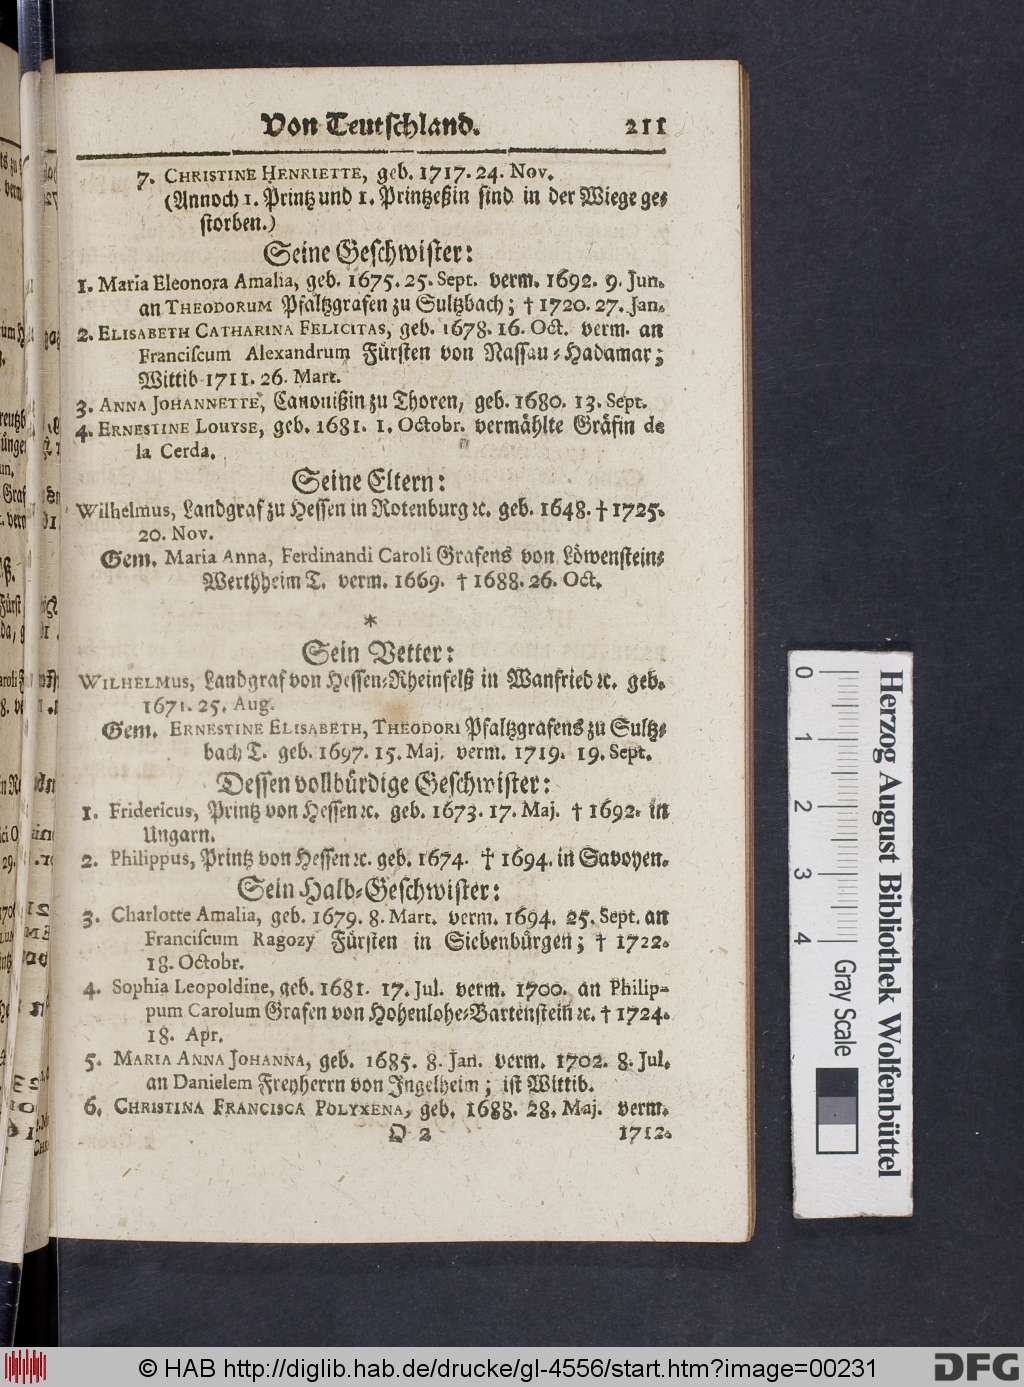 Von Teutschland. 211
7. CHRISTINE HENRIETTE, geb. 1717. 24. Nov.
(Annoch 1. Printz und 1. Printzeßin sind in der Wiege ge-
storben.)
Seine Geschwister:
1. Maria Eleonora Amalia, geb. 1675. 25. Sept. verm. 1692. 9. Jun.
an THEODORUM Pfaltzgrafen zu Sultzbach; † 1720. 27. Jan.
2. ELISABETH CATHARINA FELICITAS, geb. 1678. 16. Oct. verm. an
Franciscum Alexandrum Fürsten von Nassau-Hadamar;
Wittib 1711. 26. Mart.
3. ANNA JOHANNETTE, Canonißin zu Thoren, geb. 1680. 13. Sept.
4. ERNESTINE LOUYSE, geb. 1681. 1. Octobr. vermählte Gräfin de
la Cerda.
Seine Eltern:
Wilhelmus, Landgraf zu Hessen in Rotenburg ꝛc. geb. 1648. † 1725.
20. Nov.
Gem. Maria Anna, Ferdinandi Caroli Grafens von Löwenstein-
Werthheim T. verm. 1669. † 1688. 26. Oct.
*
Sein Vetter:
WILHELMUS, Landgraf von Hessen-Rheinfelß in Wanfried ꝛc. geb.
1671. 25. Aug.
Gem. ERNESTINE ELISABETH, THEODORI Pfaltzgrafens zu Sultz-
bach T. geb. 1697. 15. Maj. verm. 1719. 19. Sept.
Dessen vollbürdige Geschwister:
1. Fridericus, Printz von Hessen ꝛc. geb. 1673. 17. Maj. † 1692. in
Ungarn.
2. Philippus, Printz von Hessen ꝛc. geb. 1674. † 1694. in Savoyen.
Sein Halb-Geschwister:
3. Charlotte Amalia, geb. 1679. 8. Mart. verm. 1694. 25. Sept. an
Franciscum Ragozy Fürsten in Siebenbürgen; † 1722.
18. Octobr.
4. Sophia Leopoldine, geb. 1681. 17. Jul. verm. 1700. an Philip-
pum Carolum Grafen von Hohenlohe-Bartenstein ꝛc. † 1724.
18. Apr.
5. MARIA ANNA JOHANNA, geb. 1685. 8. Jan. verm. 1702. 8. Jul.
an Danielem Freyherrn von Ingelheim; ist Wittib.
6. CHRISTINA FRANCISCA POLYXENA, geb. 1688. 28. Maj. verm.
O 2 1712.
0 1 2 3 4 Gray Scale
Herzog August Bibliothek Wolfenbüttel
© HAB http://diglib.hab.de/drucke/gl-4556/start.htm?image=00231
DFG